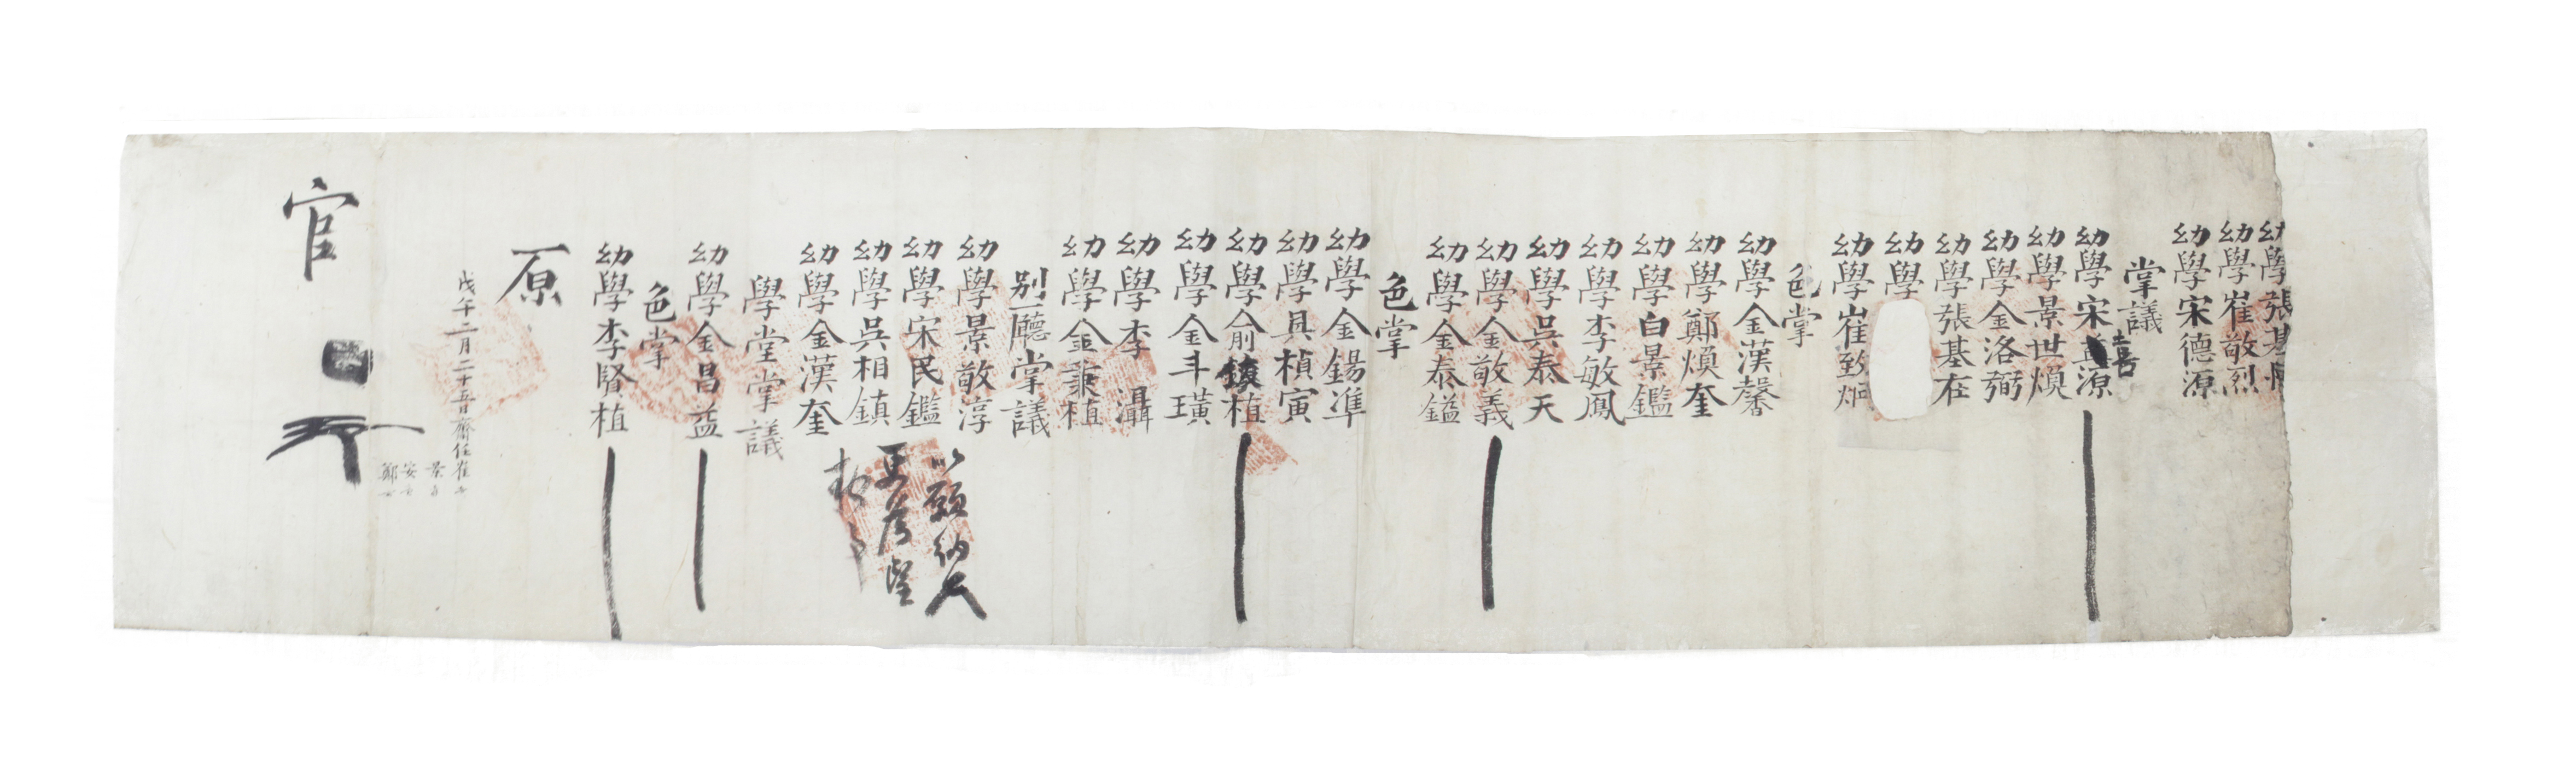 幼學張基
幼學崔敬烈
幼學宋德源
掌議
幼學宋喜源
幼學景世煥
幼學金洛弼
幼學張基在
幼學
幼學崔致炯
色掌
幼學金漢馨
幼學鄭煥奎
幼學白景鑑
幼學李敏鳳
幼學吳泰天
幼學金敬義
幼學金泰鎰
色掌
幼學金錫準
幼學具楨寅
幼學俞鎮植
幼學金斗璜
幼學李灄
幼學金秉植
別廳掌議
幼學景敬淳
幼學宋民鑑
幼學吳相鎮
幼學金漢奎
學堂掌議
幼學金昌益
色掌
幼學李賢植
原
戊午二月二十五日齋任崔
景
安
鄭
官